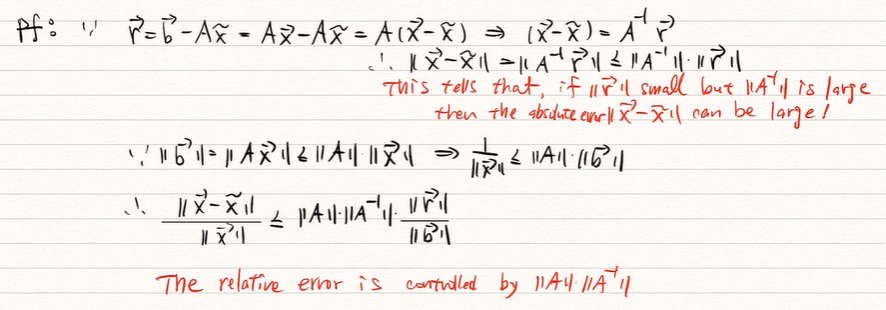 Pf: ∵ r⃗ = b⃗ - Ax̃ = Ax⃗ - Ax̃ = A(x⃗ - x̃) ⇒ (x⃗ - x̃) = A⁻¹ r⃗
∴ ‖x⃗ - x̃‖ = ‖A⁻¹ r⃗‖ ≤ ‖A⁻¹‖·‖r⃗‖
This tells that, if ‖r⃗‖ small but ‖A⁻¹‖ is large
then the absolute error ‖x⃗ - x̃‖ can be large!
∵ ‖b⃗‖ = ‖Ax⃗‖ ≤ ‖A‖·‖x⃗‖ ⇒ 1/‖x⃗‖ ≤ ‖A‖·‖b⃗‖
∴ ‖x⃗ - x̃‖/‖x⃗‖ ≤ ‖A‖·‖A⁻¹‖·‖r⃗‖/‖b⃗‖
The relative error is controlled by ‖A‖·‖A⁻¹‖